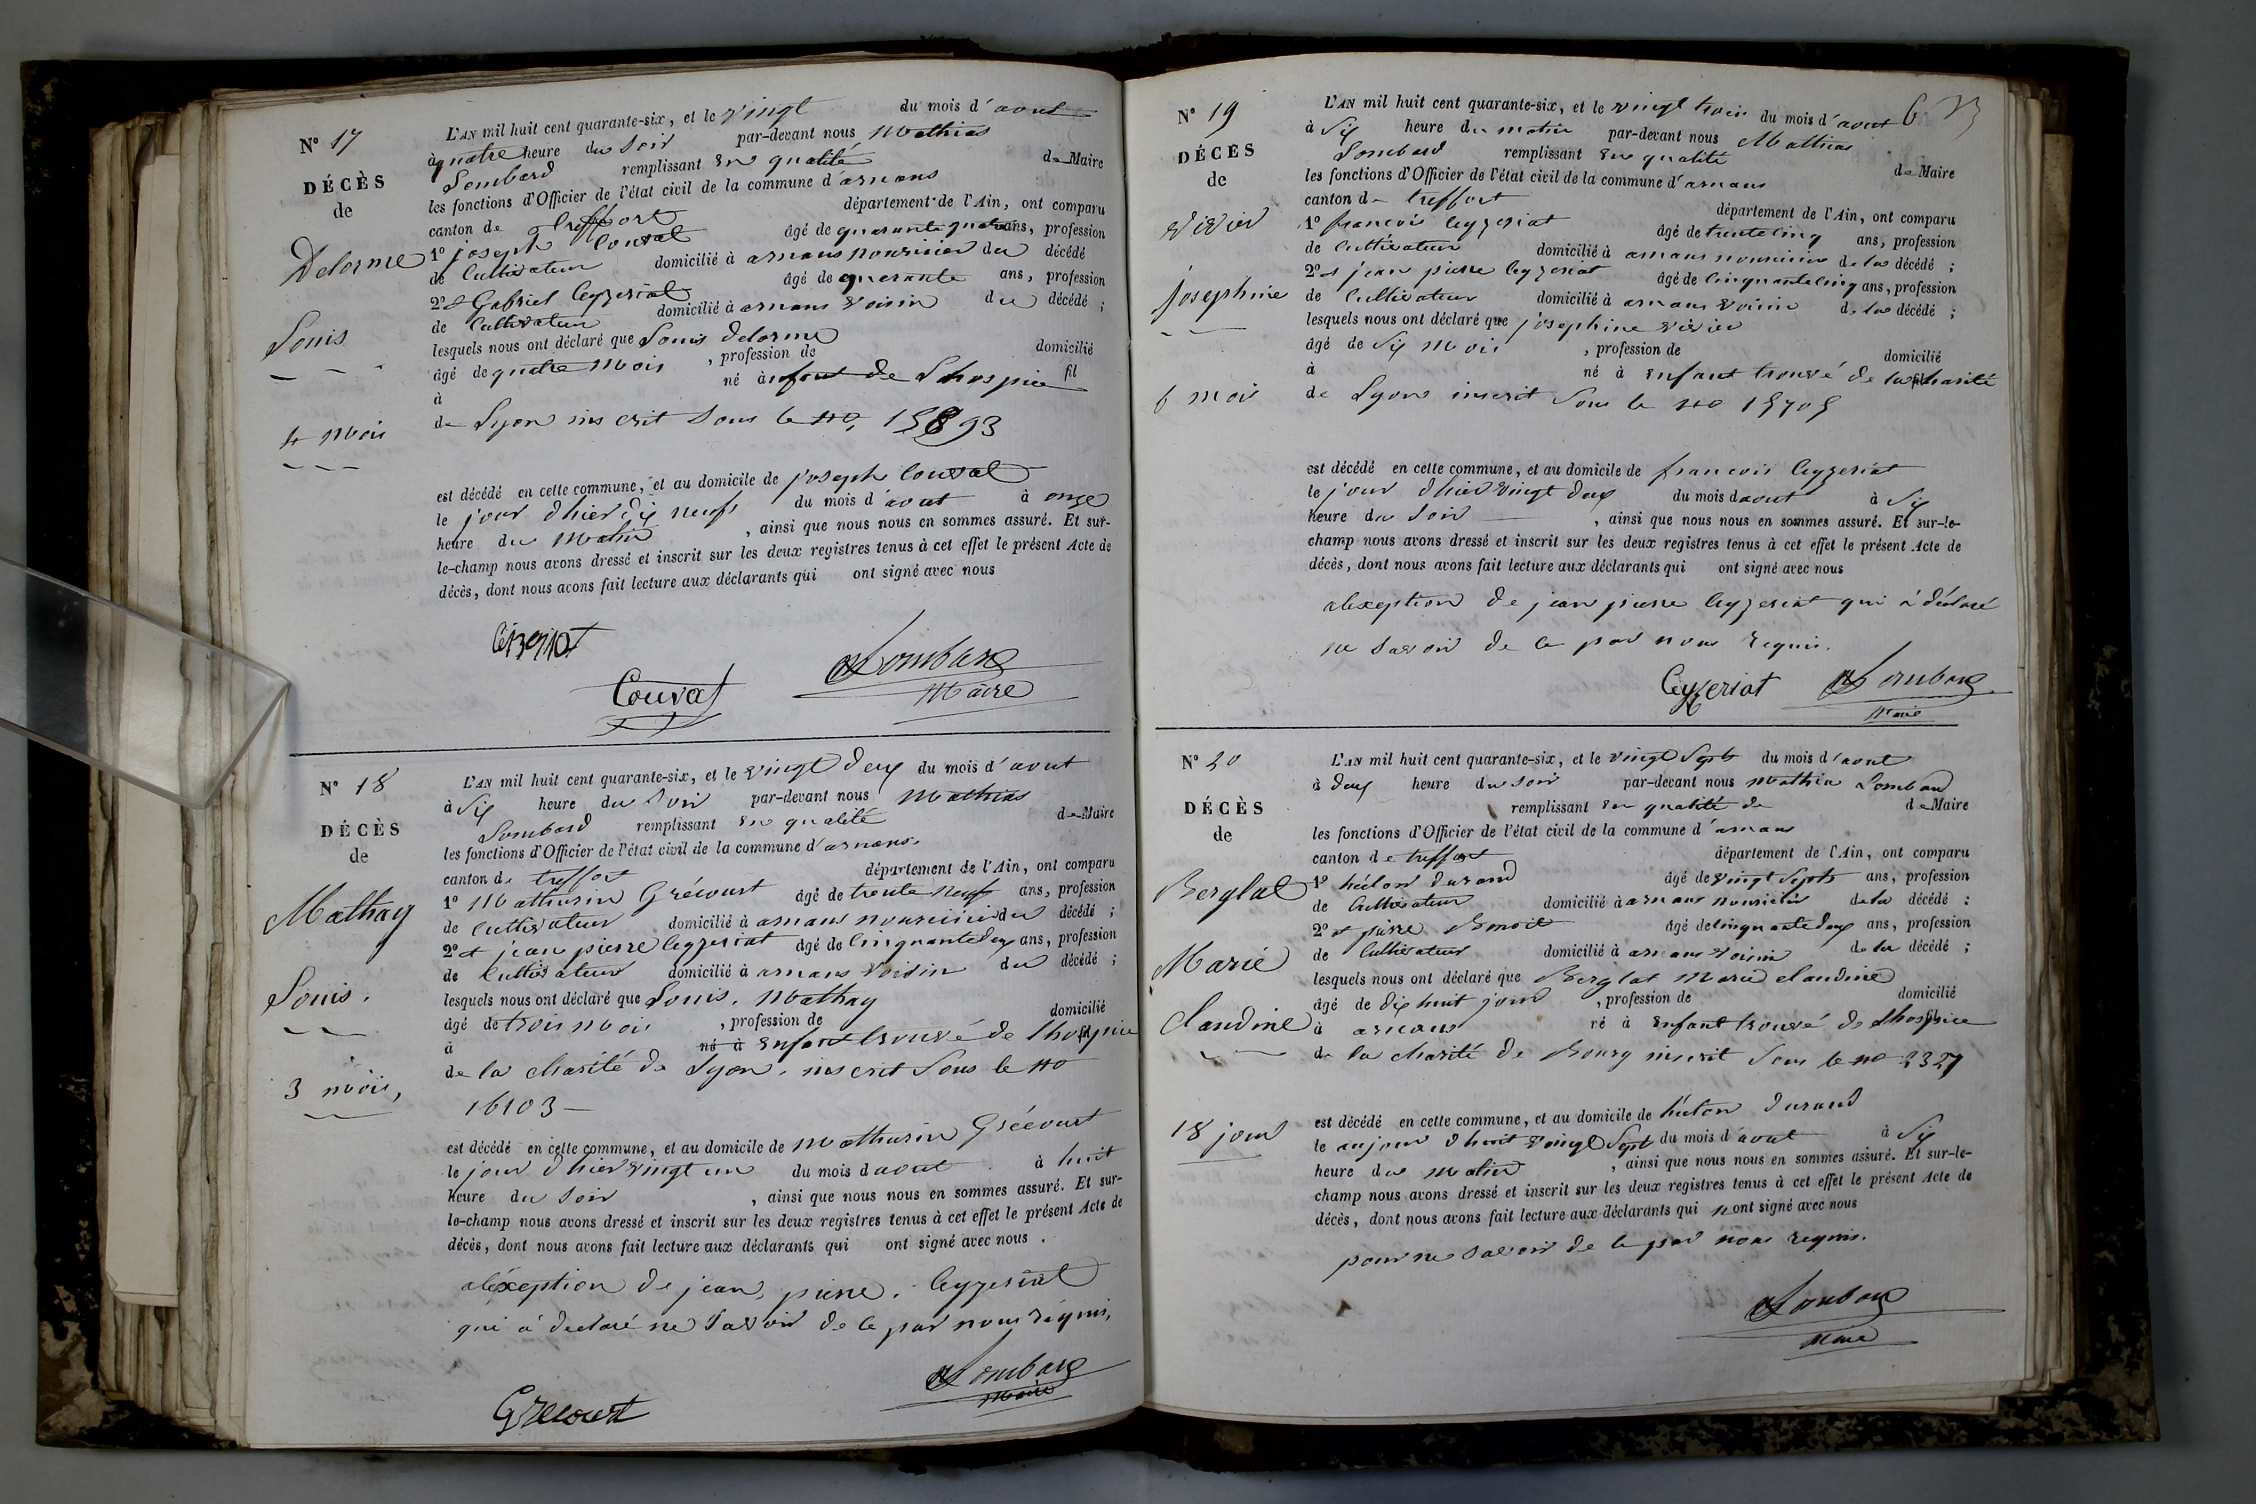 N° 17
DÉCÈS
de
Delorme
Louis
4 mois
L'AN mil huit cent quarante-six, et le vingt du mois d'aout
à quatre heure du soir par-devant nous Mathias
Lombard remplissant en qualité de Maire
les fonctions d'Officier de l'état civil de la commune d'arnans
canton de treffort département de l'Ain, ont comparu
1° joseph Couvat âgé de quarante quatre ans, profession
de Cultivateur domicilié à arnans nourricier du décédé
2° et Gabriel Ceyzeriat âgé de quarante ans, profession
de Cultivateur domicilié à arnans voisin du décédé ;
lesquels nous ont déclaré que Louis delorme
âgé de quatre mois , profession de domicilié
à né à enfant de Lhospice fil
de Lyon inscrit sous le no, 15893
est décédé en cette commune, et au domicile de joseph Couvat
le jour dhier dix neuf du mois d'aout à onze
heure du matin , ainsi que nous nous en sommes assuré. Et sur-
le-champ nous avons dressé et inscrit sur les deux registres tenus à cet effet le présent Acte de
décès, dont nous avons fait lecture aux déclarants qui ont signé avec nous
Couvat
Lombard
Maire
N° 18
DÉCÈS
de
Mathay
Louis.
3 mois,
L'AN mil huit cent quarante-six, et le vingt deux du mois d'aout
à Six heure du Soir par-devant nous Mathias
Lombard remplissant en qualité de Maire
les fonctions d'Officier de l'état civil de la commune d'arnans.
canton de treffort département de l'Ain, ont comparu
1° Mathurin Grécourt âgé de trente neuf ans, profession
de Cultivateur domicilié à arnans nourricier du décédé ;
2° et jean pierre Ceyzeriat âgé de Cinquante deux ans, profession
de Cultivateur domicilié à arnans voisin du décédé ;
lesquels nous ont déclaré que Louis. Mathay
âgé de trois mois , profession de domicilié
à né à enfant trouvé de Lhospice fil
de la charité de Lyon. inscrit Sous le no
16103 —
est décédé en cette commune, et au domicile de Mathurin Grécourt
le jour dhier vingt un du mois daout à huit
heure du Soir , ainsi que nous nous en sommes assuré. Et sur-
le-champ nous avons dressé et inscrit sur les deux registres tenus à cet effet le présent Acte de
décès, dont nous avons fait lecture aux déclarants qui ont signé avec nous .
aléxception de jean, pierre. Ceyzeriat
qui à declaré ne Savoir de ce par nous réquis,
Lombard
Maire
Grecourt
N° 19
DÉCÈS
de
vivier
josephine
6 mois
L'AN mil huit cent quarante-six, et le vingt trois du mois d'aout
à Six heure du matin par-devant nous Mathias
Lombard remplissant en qualité de Maire
les fonctions d'Officier de l'état civil de la commune d'arnans
canton de treffort département de l'Ain, ont comparu
1° francois Ceyzeriat âgé de trente cinq ans, profession
de Cultivateur domicilié à arnans nourricier de la décédé ;
2° et jean pierre Ceyzeriat âgé de Cinquante cinq ans, profession
de Cultivateur domicilié à arnans voisin de la décédé ;
lesquels nous ont déclaré que josephine vivier
âgé de Six mois , profession de domicilié
à né à enfant trouvé de la charité fil
de Lyon inscrit Sous le no 15705
est décédé en cette commune, et au domicile de francois Ceyzeriat
le jour dhier vingt deux du mois daout à Six
heure du Soir , ainsi que nous nous en sommes assuré. Et sur-le-
champ nous avons dressé et inscrit sur les deux registres tenus à cet effet le présent Acte de
décès, dont nous avons fait lecture aux déclarants qui ont signé avec nous
alexeption de jean pierre Ceyzeriat qui à déclaré
ne savoir de ce par nous requis.
Ceyzeriat Lombard
Maire
N° 20
DÉCÈS
de
Berglat
Marie
Claudine
18 jour
L'AN mil huit cent quarante-six, et le vingt Sept du mois d'aout
à deux heure du soir par-devant nous Mathia Lombard
remplissant en qualité de de Maire
les fonctions d'Officier de l'état civil de la commune d'arnans
canton de treffort département de l'Ain, ont comparu
1° hécton durand âgé de vingt Sept ans, profession
de Cultivateur domicilié à arnans nourricier de la décédé :
2° et pierre Benoit âgé de Cinquante deux ans, profession
de Cultivateur domicilié à arnans voisin de la décédé ;
lesquels nous ont déclaré que Berglat Marie claudine
âgé de dix huit jour , profession de domicilié
à arnans né à enfant trouvé de Lhospice fil
de la charité de Bourg inscrit Sous le no 2327
est décédé en cette commune, et au domicile de hécton durand
le aujour dhuit vingt Sept du mois d'aout à Six
heure du matin , ainsi que nous nous en sommes assuré. Et sur-le-
champ nous avons dressé et inscrit sur les deux registres tenus à cet effet le présent Acte de
décès, dont nous avons fait lecture aux déclarants qui nont signé avec nous
pour ne savoir de ce par nous requis.
Lombard
Maire